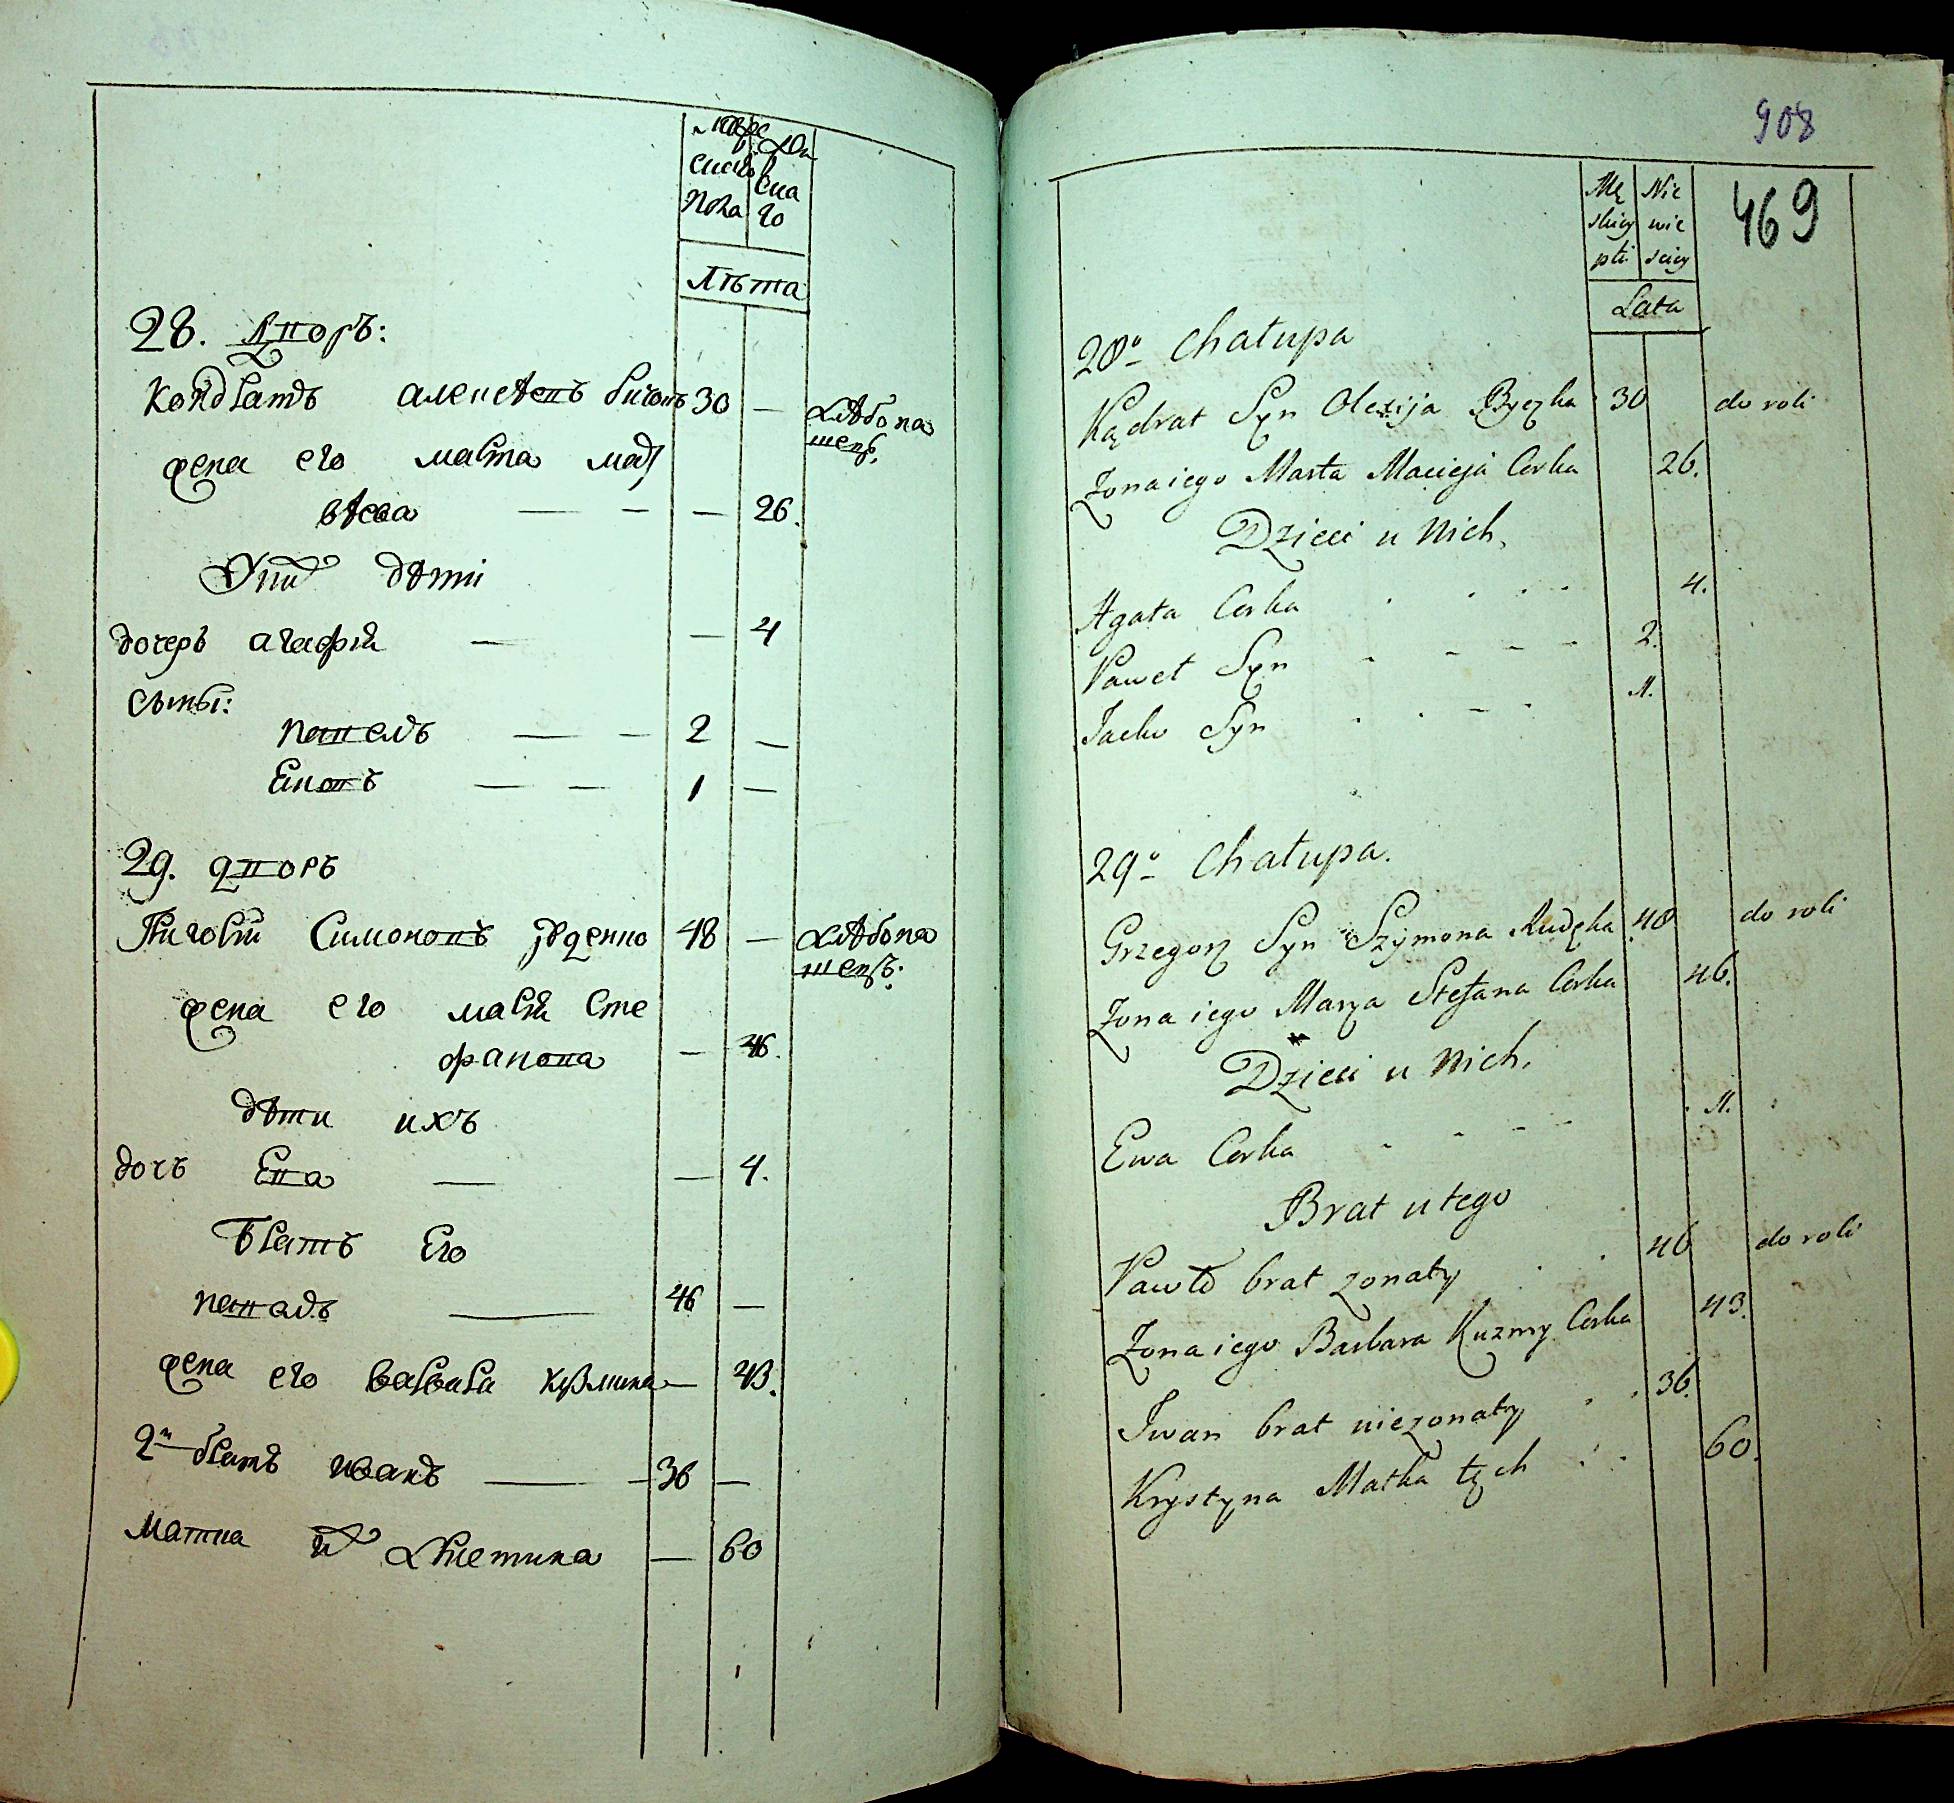 Лѣта
28. Дворъ:
Кондратъ Алексѣевъ Бичокъ 30 — хлѣбопа
шецъ.
жена его Марта Мат
вѣева — — — 26.
У них дѣти
дочеръ Агафия — — 4
сыны:
Павелъ — — 2 —
Яковъ — — 1 —
29. Дворъ
Григорий Симоновъ 48 — хлѣбопа
шецъ.
жена его Мария Сте
фанова — 46.
дѣти ихъ
дочъ Ева — — 4.
Братъ Его
Павалъ — 46 —
жена его Варвара Кузмина — 43.
2й братъ Иванъ — — 36 —
Матка их Христина — 60
908
469
Mę Nie
skiey wie
płci sciey
Lata
28o Chałupa
Kądrat Syn Olexija Byczka 30 do roli
Zona iego Marta Macieja Corka 26.
Dzieci u Nich,
Agata Corka 4.
Paweł Syn 2.
Jacko Syn 1.
29o Chałupa.
Grzegorz Syn Szymona Rudzka 48 do roli
Zona iego Marya Stefana Corka 46.
Dzieci u Nich,
Ewa Corka
Brat u tego
Pawło brat zonaty 46 do roli
Zona iego Barbara Kuzmy Corka 43.
Iwan brat niezonaty 36.
Krystyna Matka tych 60.